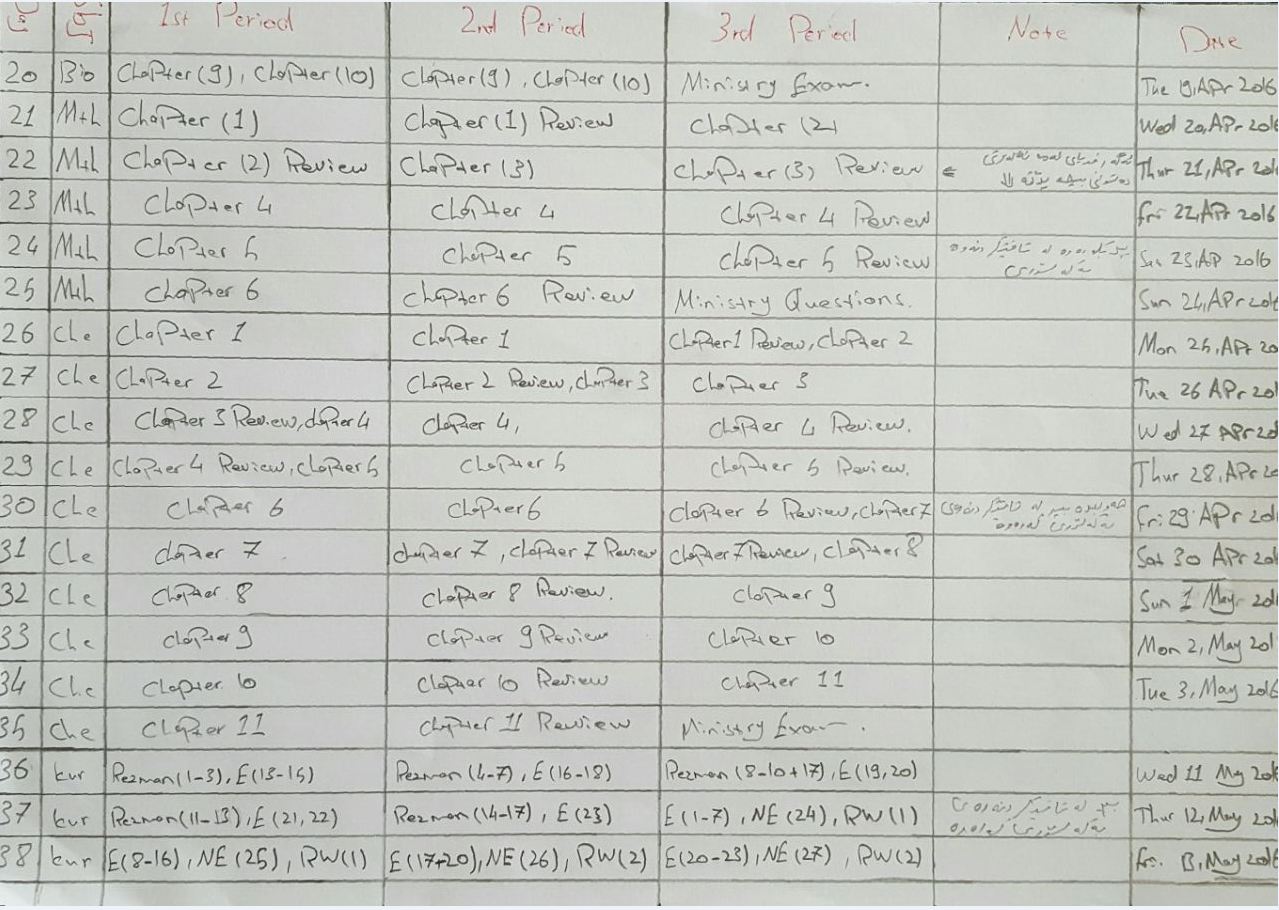 1st Period 2nd Period 3rd Period Note Date
20 Bio Chapter (9), Chapter (10) Chapter (9), Chapter (10) Ministry Exam. Tue 19, APr 2016
21 Mth Chapter (1) Chapter (1) Review Chapter (2) Wed 20, APr 2016
22 Mth Chapter (2) Review Chapter (3) Chapter (3) Review Thur 21, APr 2016
23 Mth Chapter 4 Chapter 4 Chapter 4 Review Fri 22, APr 2016
24 Mth Chapter 5 Chapter 5 Chapter 5 Review 23, AP 2016
25 Mth Chapter 6 Chapter 6 Review Ministry Questions. Sun 24, APr 2016
26 Che Chapter 1 Chapter 1 Chapter 1 Review, Chapter 2 Mon 25, APr 20
27 Che Chapter 2 Chapter 2 Review, Chapter 3 Chapter 3 Tue 26 APr 201
28 Che Chapter 3 Review, Chapter 4 Chapter 4, Chapter 4 Review. Wed 27 APr 20
29 Che Chapter 4 Review, Chapter 5 Chapter 5 Chapter 5 Review. Thur 28, APr 20
30 Che Chapter 6 Chapter 6 Chapter 6 Review, Chapter 7 Fri 29 APr 20
31 Che Chapter 7 Chapter 7, Chapter 7 Review Chapter 7 Review, Chapter 8 Sat 30 APr 201
32 Che Chapter 8 Chapter 8 Review. Chapter 9 Sun 1 May 201
33 Che Chapter 9 Chapter 9 Review Chapter 10 Mon 2, May 201
34 Che Chapter 10 Chapter 10 Review Chapter 11 Tue 3, May 2016
35 Che Chapter 11 Chapter 11 Review Ministry Exam.
36 kur Rezman (1-3), E(13-15) Rezman (4-7), E(16-18) Rezman (8-10+17), E(19,20) Wed 11 May 2016
37 kur Rezman (11-13), E(21,22) Rezman (14-17), E(23) E(1-7), NE(24), RW(1) Thur 12, May 2016
38 kur E(8-16), NE(25), RW(1) E(17+20), NE(26), RW(2) E(20-23), NE(27), RW(2) Fri. 13, May 2016